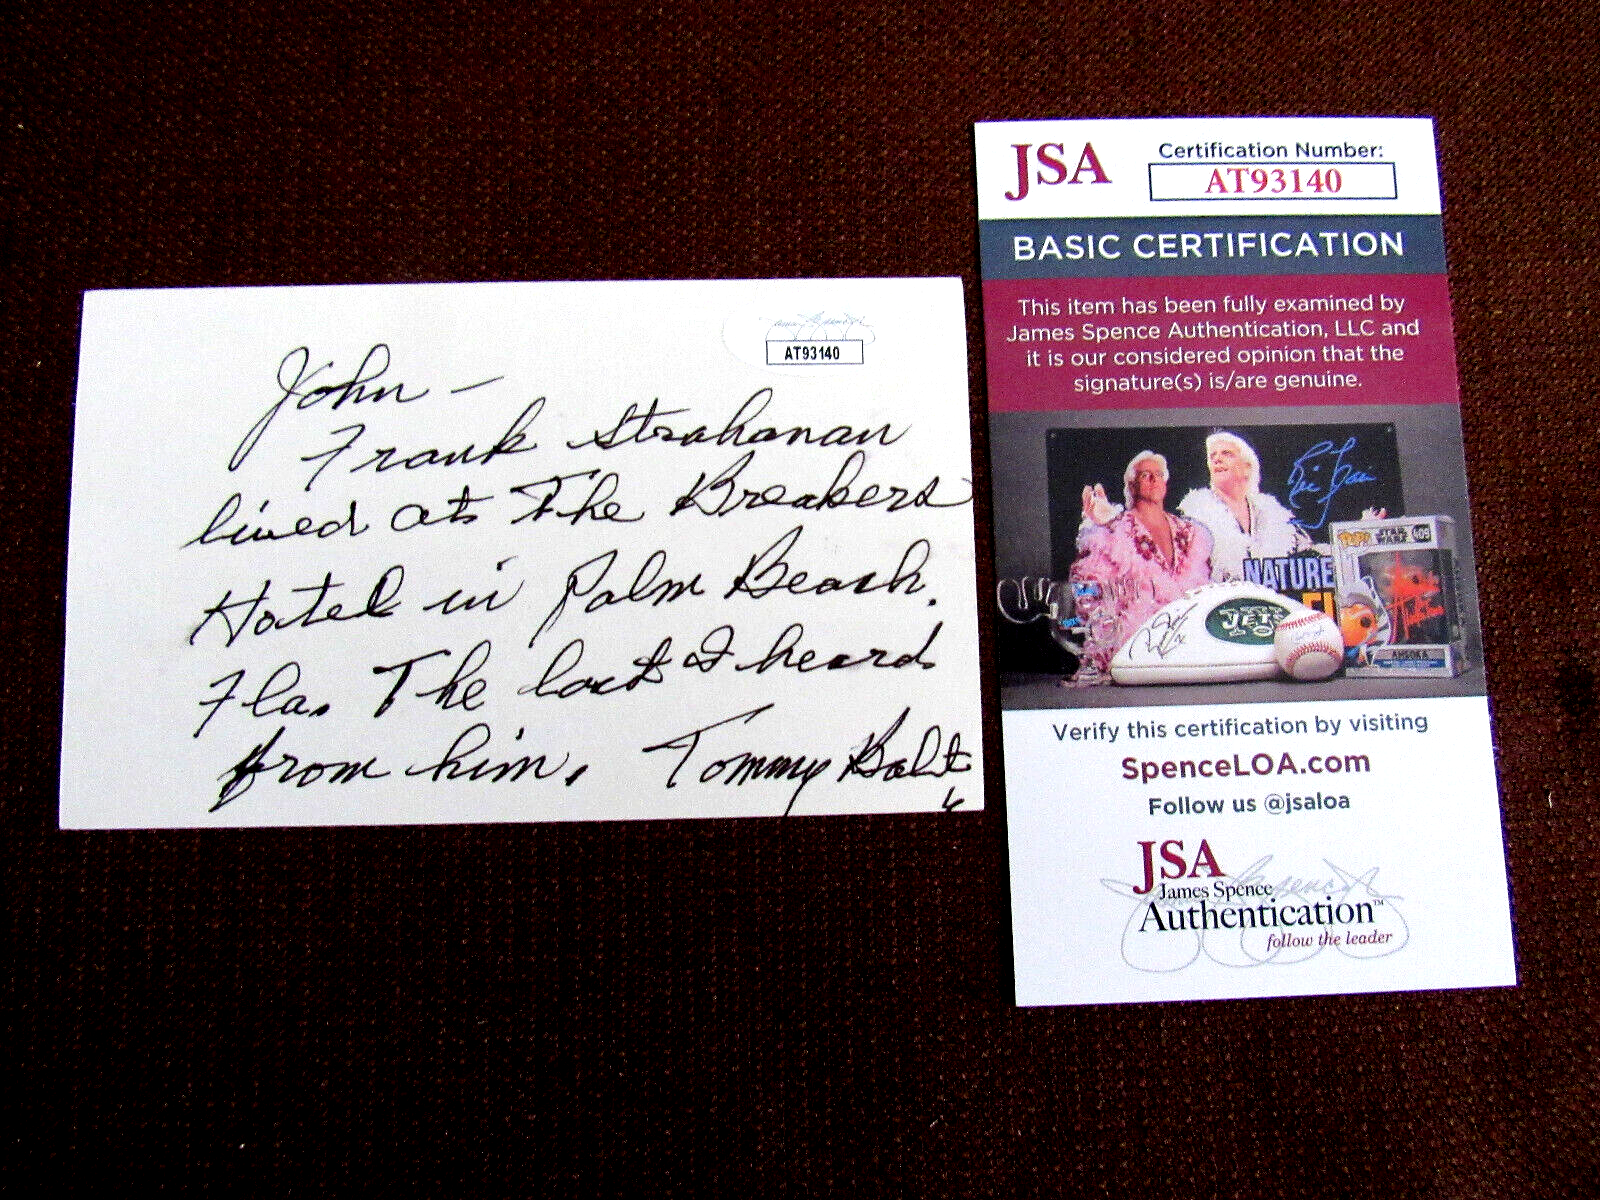 John –
Frank Strahanan
lived at The Breakers
Hotel in Palm Beach,
Fla. The last I heard
from him. Tommy
AT93140
JSA
Certification Number:
AT93140
BASIC CERTIFICATION
This item has been fully examined by
James Spence Authentication, LLC and
it is our considered opinion that the
signature(s) is/are genuine.
NATURE
JETS
POP!
STAR WARS
409
AHSOKA
Verify this certification by visiting
SpenceLOA.com
Follow us @jsaloa
JSA
James Spence
Authentication™
follow the leader